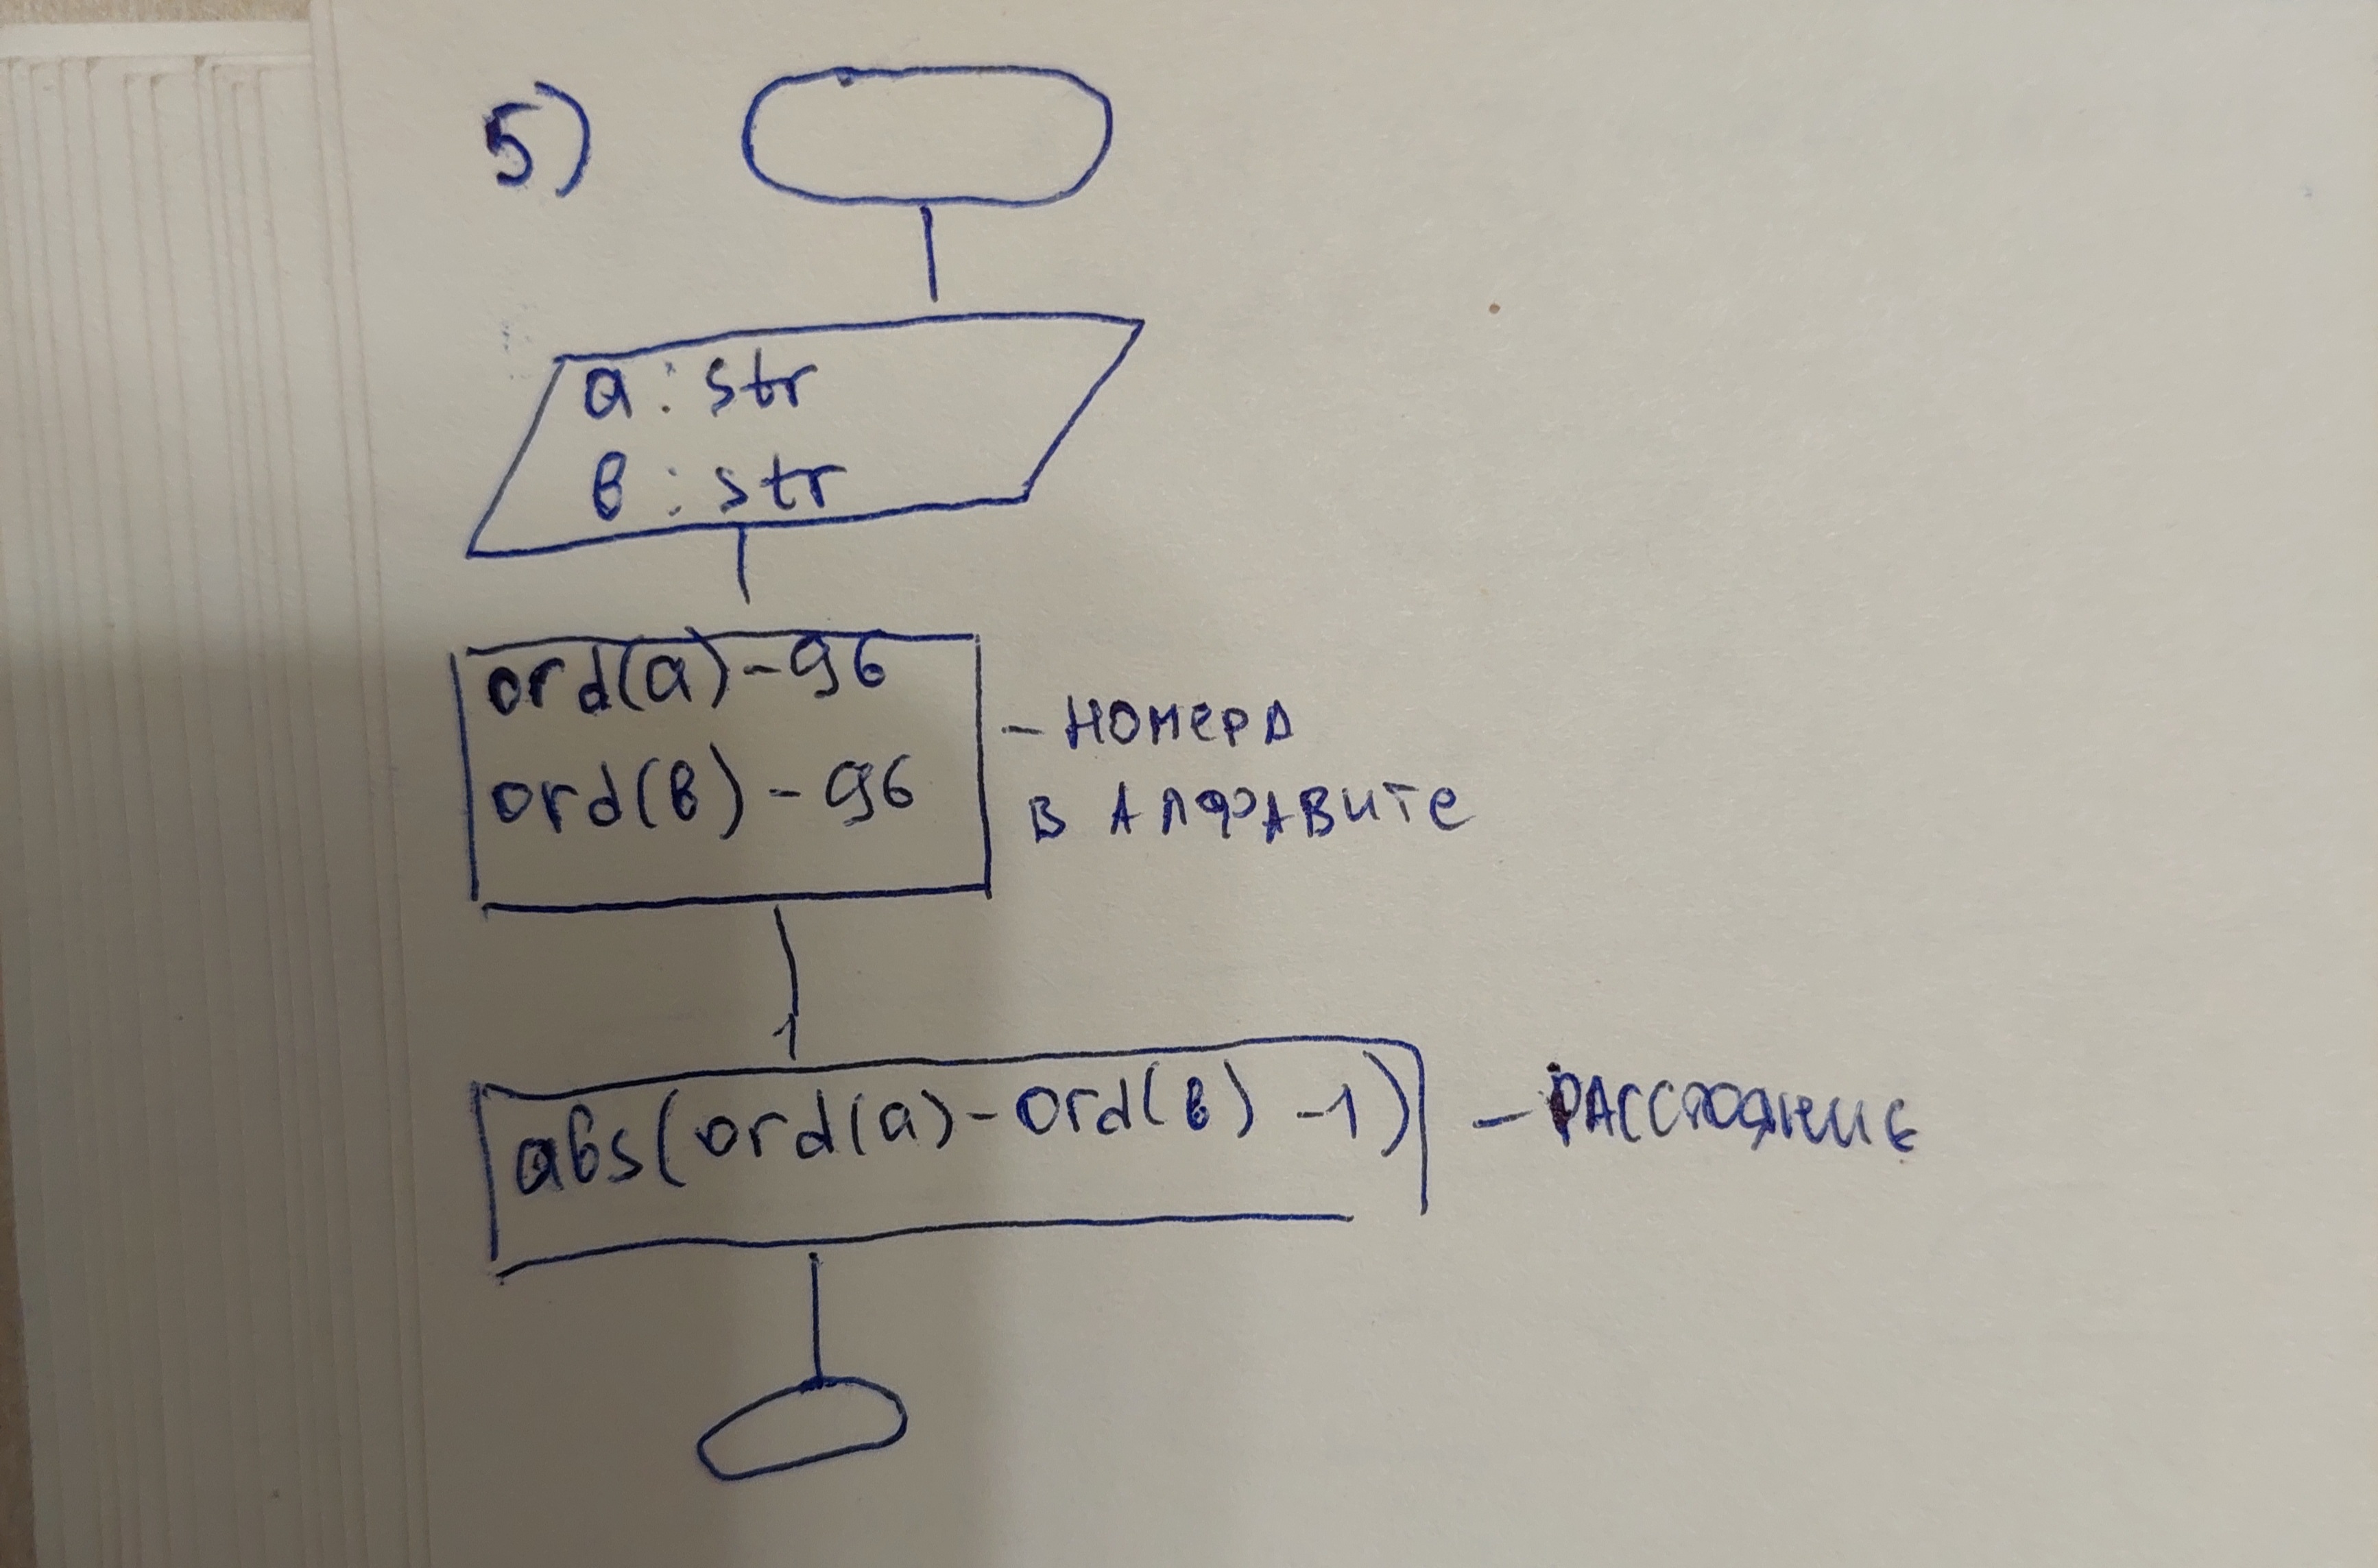 5)
a : str
в : str
ord(a)-96
ord(в) - 96
- номера
в алфавите
abs(ord(a)-ord(в) -1)
- расстояние